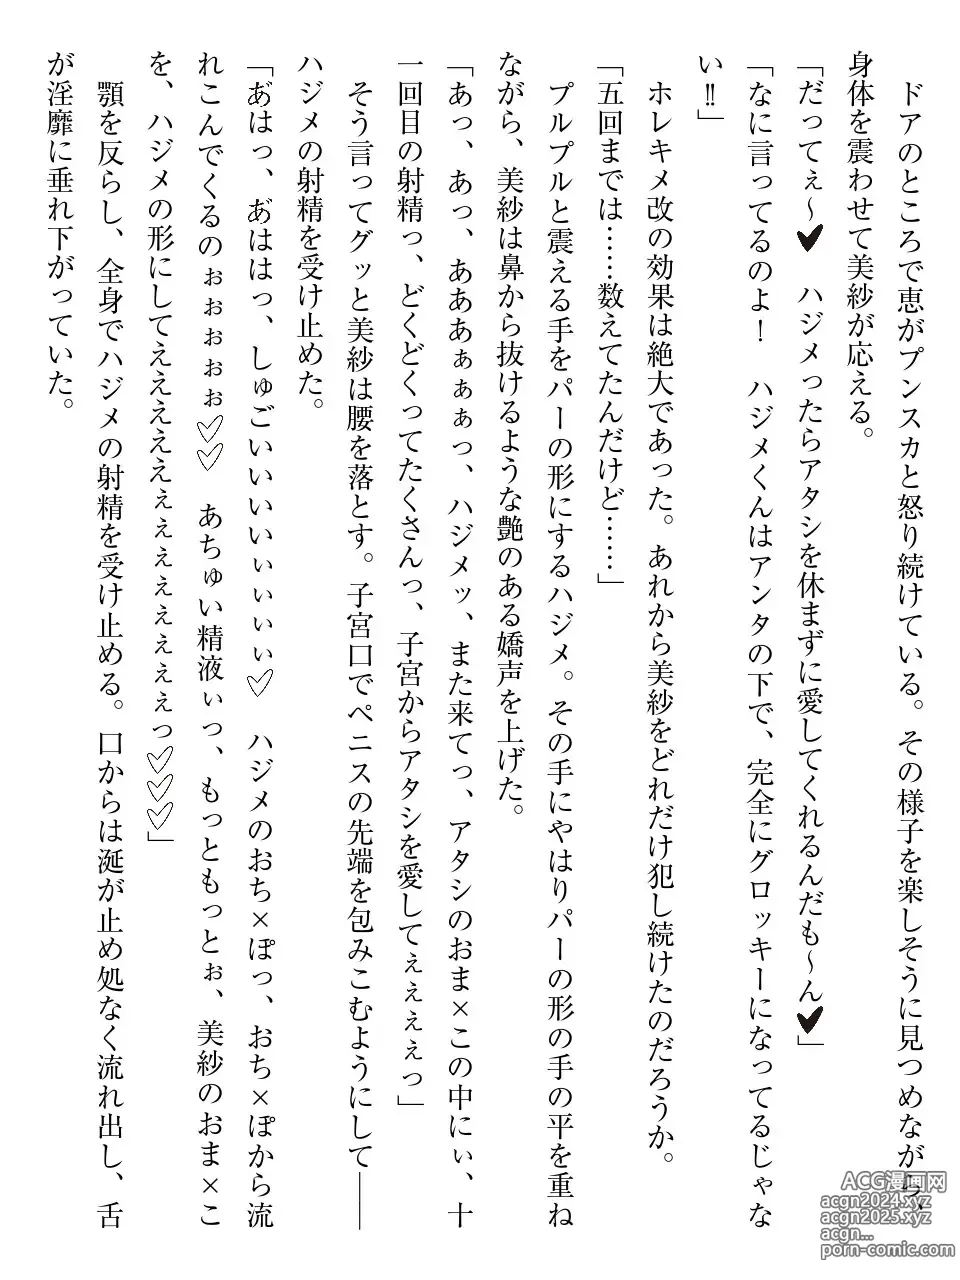 ドアのところで恵がプンスカと怒り続けている。その様子を楽しそうに見つめながら、
身体を震わせて美紗が応える。
「だってぇ～♥　ハジメったらアタシを休まずに愛してくれるんだも～ん♥」
「なに言ってるのよ！　ハジメくんはアンタの下で、完全にグロッキーになってるじゃな
い!!」
　ホレキメ改の効果は絶大であった。あれから美紗をどれだけ犯し続けたのだろうか。
「五回までは……数えてたんだけど……」
　プルプルと震える手をパーの形にするハジメ。その手にやはりパーの形の手の平を重ね
ながら、美紗は鼻から抜けるような艶のある嬌声を上げた。
「あっ、あっ、あああぁぁぁっ、ハジメッ、また来てっ、アタシのおま×この中にぃ、十
一回目の射精っ、どくどくってたくさんっ、子宮からアタシを愛してぇぇぇぇっ」
　そう言ってグッと美紗は腰を落とす。子宮口でペニスの先端を包みこむようにして――
ハジメの射精を受け止めた。
「あ゛はっ、あ゛ははっ、しゅごいいいいぃぃぃぃ♡　ハジメのおち×ぽっ、おち×ぽから流
れこんでくるのぉぉぉぉぉ♡♡　あちゅい精液ぃっ、もっともっとぉ、美紗のおま×こ
を、ハジメの形にしてえええええぇぇぇぇぇぇぇっ♡♡♡」
　顎を反らし、全身でハジメの射精を受け止める。口からは涎が止め処なく流れ出し、舌
が淫靡に垂れ下がっていた。
ACG漫画网
acgn2024.xyz
acgn2025.xyz
acgn...
porn-comic.com